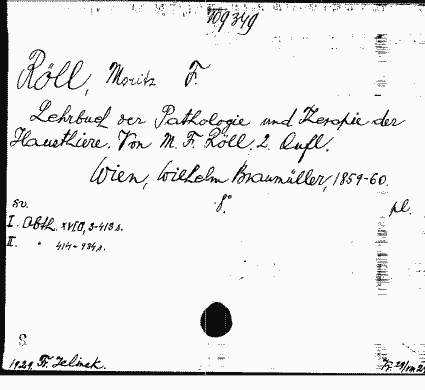 109349
Röll, Moritz F.
Lehrbuch der Pathologie und Terapie der
Hausthiere. Von M. F. Röll. 2. Aufl.
Wien, Wilhelm Braumüller, 1859-60.
8° pl.
I. Abth. XVIII, 3-413 s.
II. " 414-934 s.
S
1929. Fr. Jelinek.